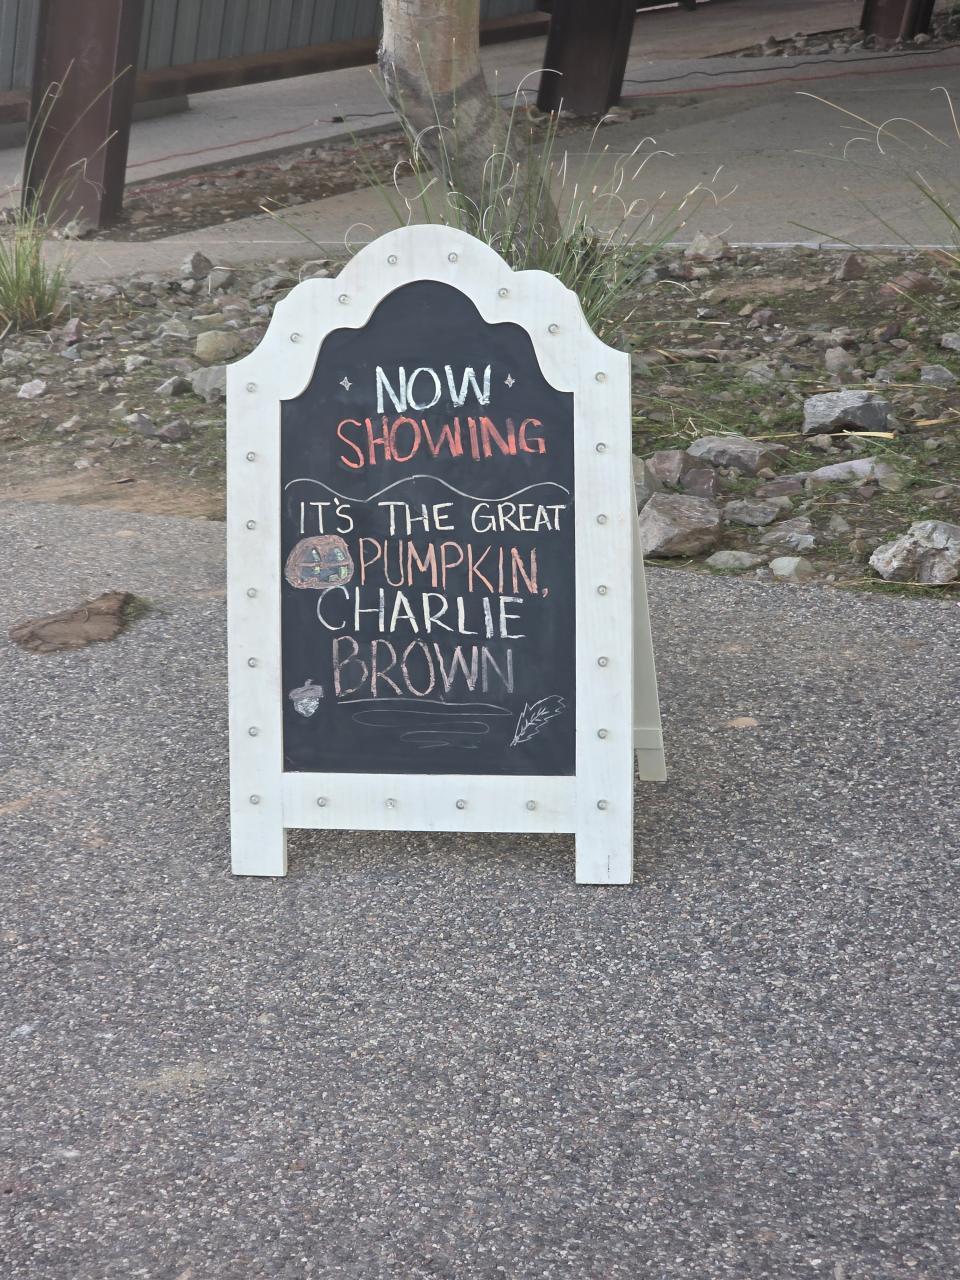 NOW
SHOWING
IT'S THE GREAT
PUMPKIN,
CHARLIE
BROWN